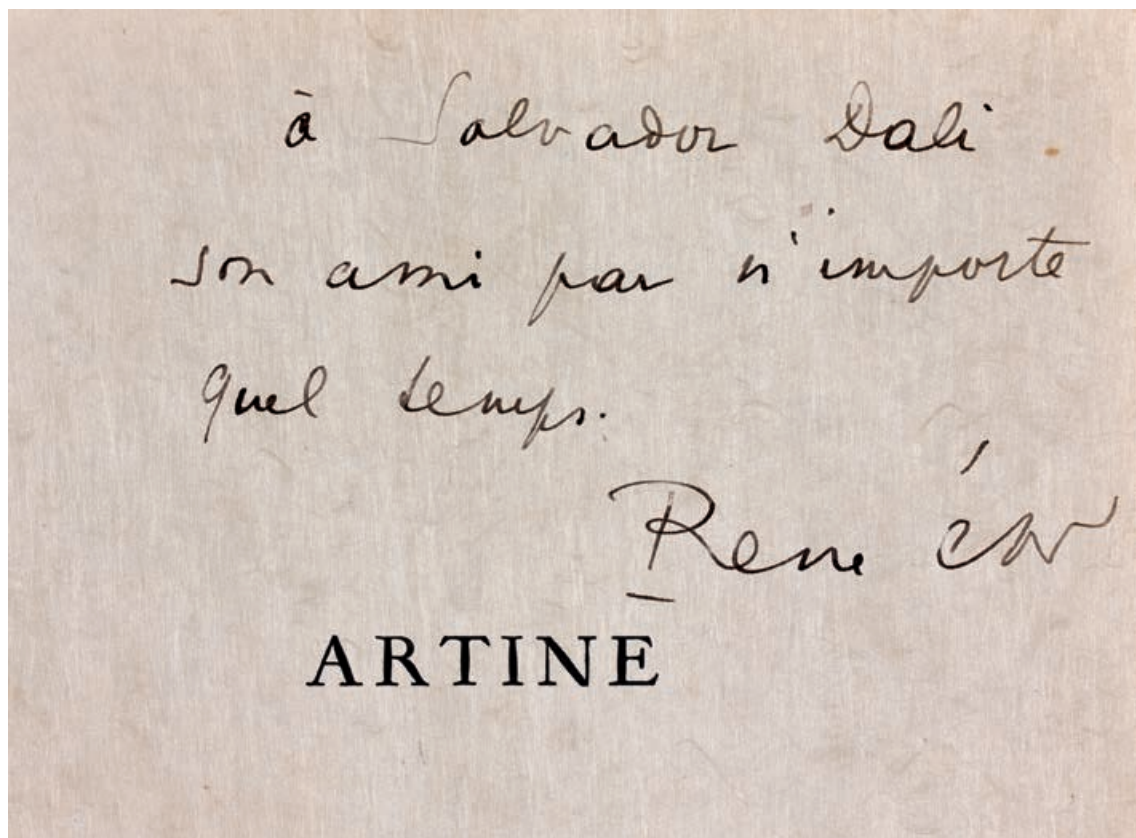 à Salvador Dali
son ami par n'importe
quel temps.
René Char
ARTINE